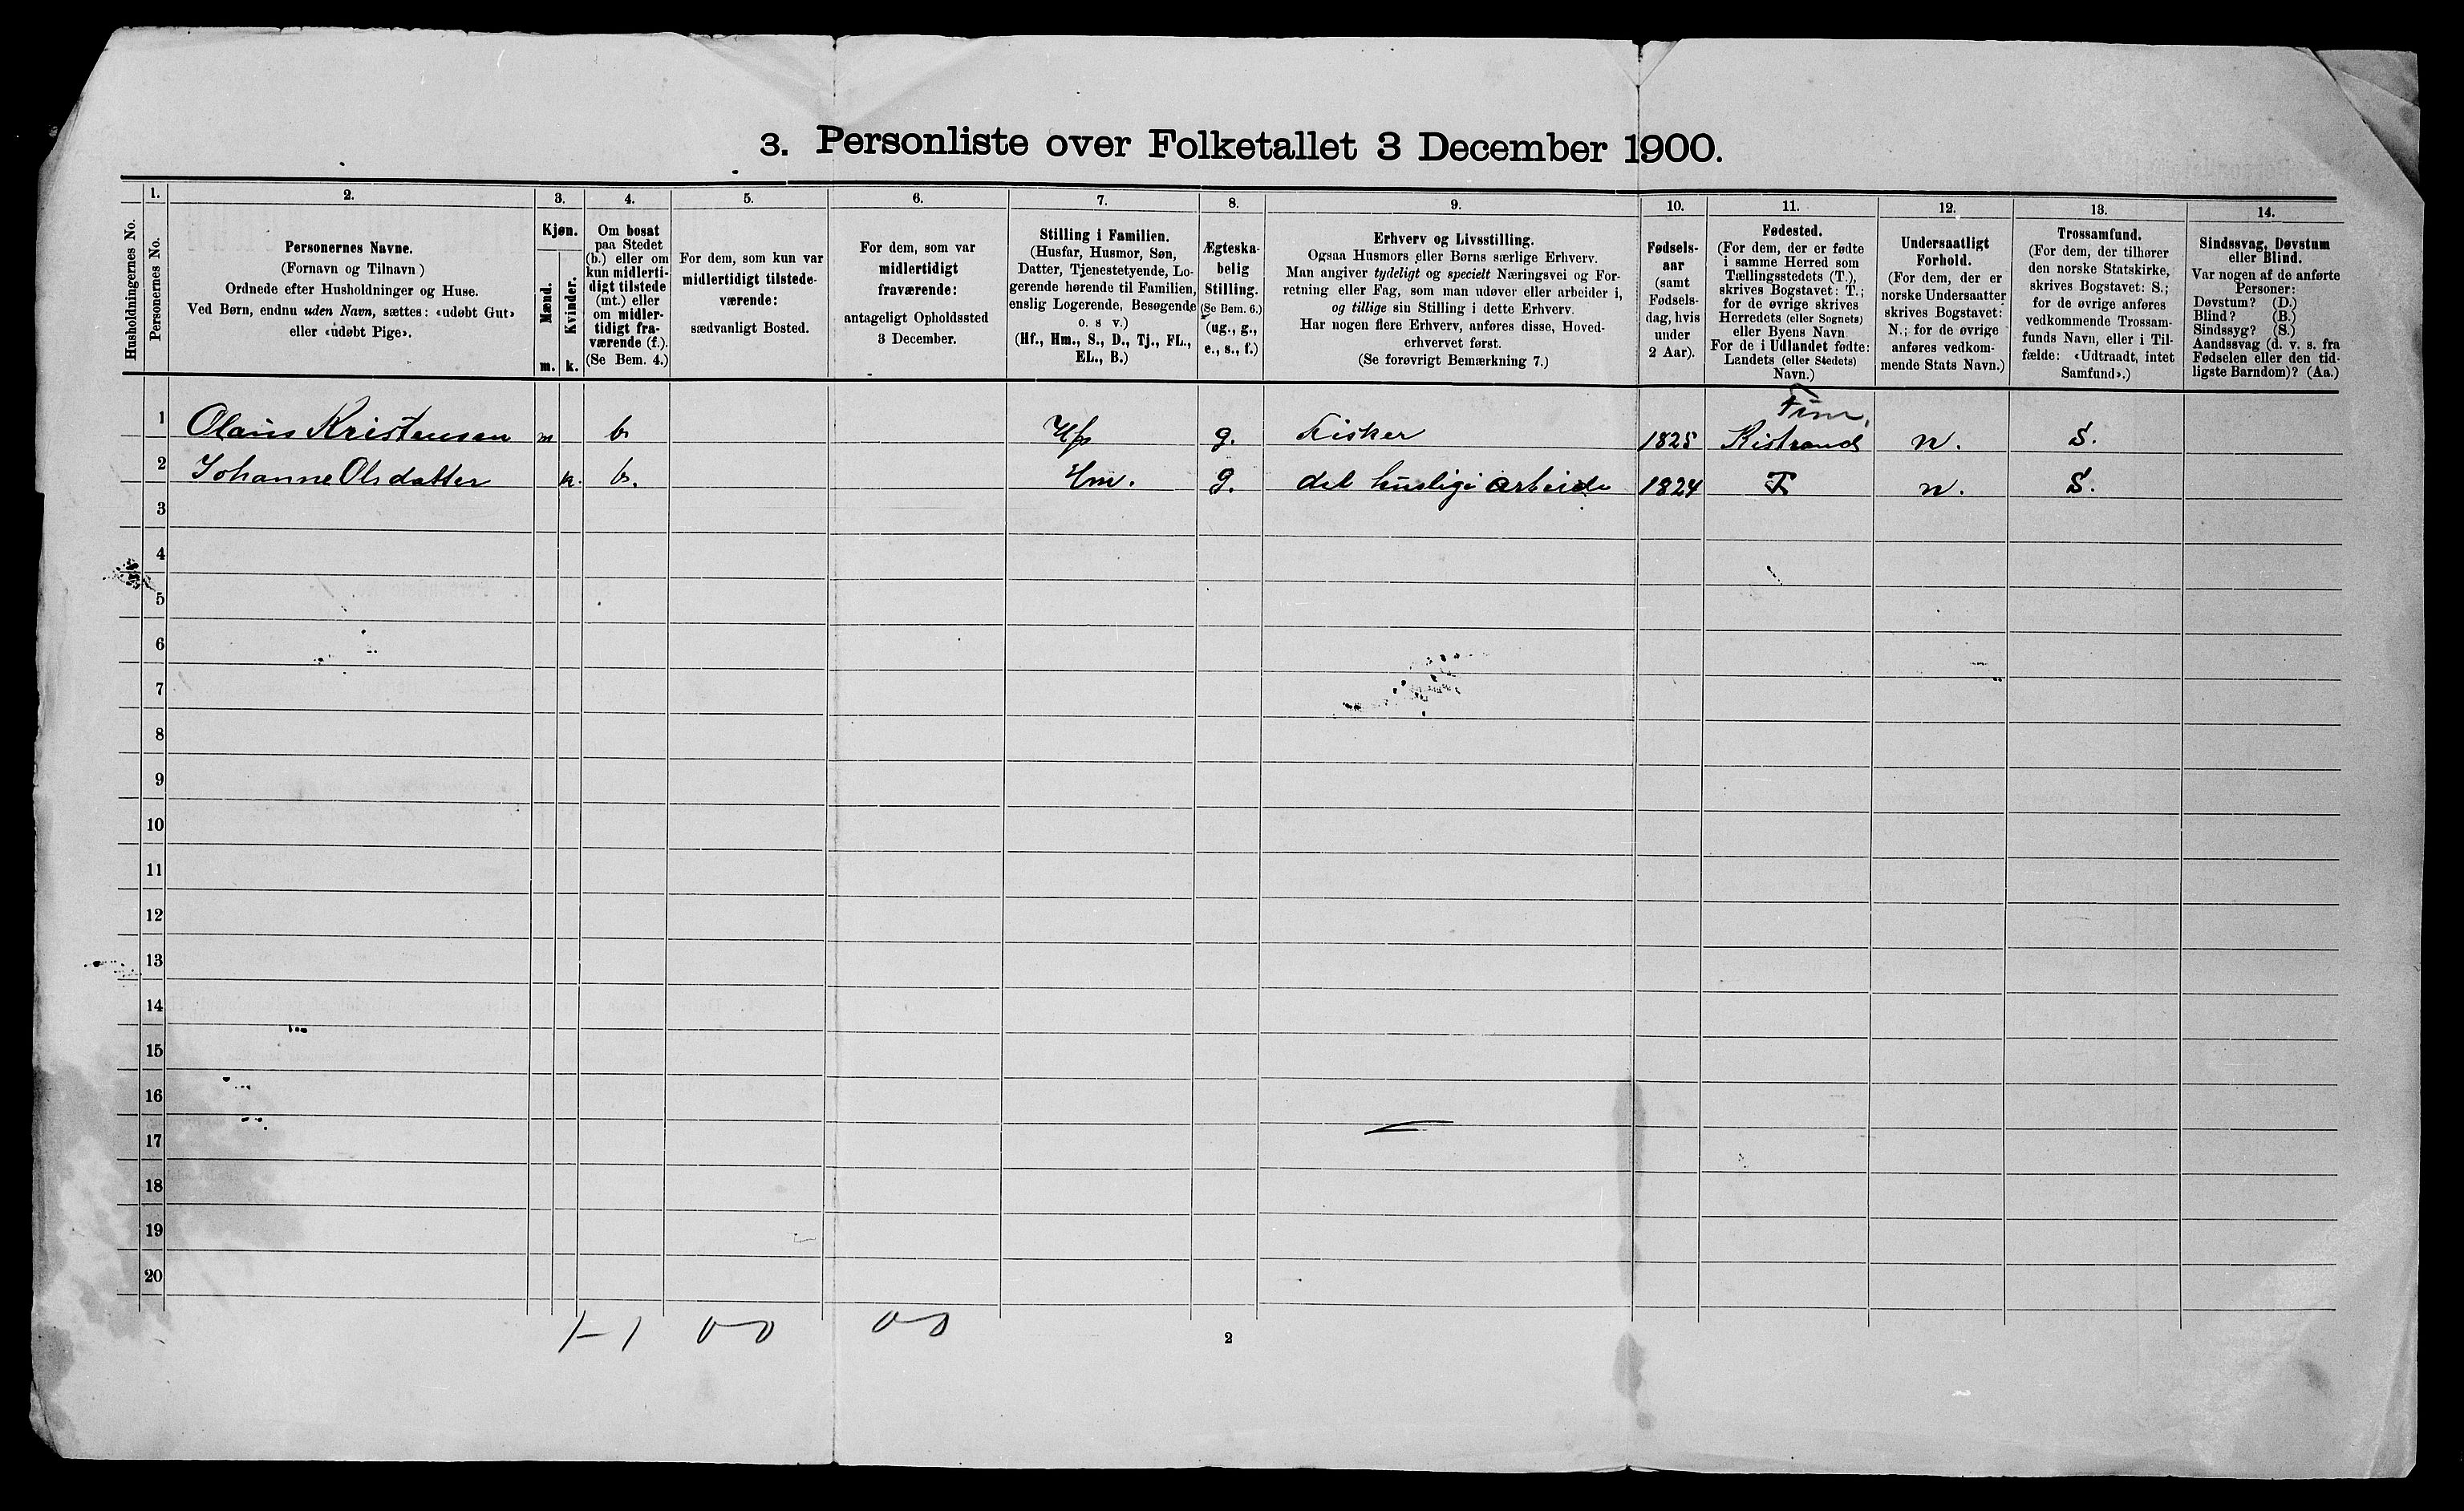 3. Personliste over Folketallet 3 December 1900.
Husholdningernes No.
1.
Personernes No.
2.
Personernes Navne.
(Fornavn og Tilnavn)
Ordnede efter Husholdninger og Huse.
Ved Børn, endnu uden Navn, sættes: «udøbt Gut»
eller «udøbt Pige».
3.
Kjøn.
Mænd.
Kvinder.
m. k.
4.
Om bosat
paa Stedet
(b.) eller om
kun midlerti-
digt tilstede
(mt.) eller
om midler-
tidigt fra-
værende (f.).
(Se Bem. 4.)
5.
For dem, som kun var
midlertidigt tilstede-
værende:
sædvanligt Bosted.
6.
For dem, som var
midlertidigt
fraværende:
antageligt Opholdssted
3 December.
7.
Stilling i Familien.
(Husfar, Husmor, Søn,
Datter, Tjenestetyende, Lo-
gerende hørende til Familien,
enslig Logerende, Besøgende
o. s v.)
(Hf., Hm., S., D., Tj., FL.,
EL., B.)
8.
Ægteska-
belig
Stilling.
(Se Bem. 6.)
(ug., g.,
e., s., f.)
9.
Erhverv og Livsstilling.
Ogsaa Husmors eller Børns særlige Erhverv.
Man angiver tydeligt og specielt Næringsvei og For-
retning eller Fag, som man udøver eller arbeider i,
og tillige sin Stilling i dette Erhverv.
Har nogen flere Erhverv, anføres disse, Hoved-
erhvervet først.
(Se forøvrigt Bemærkning 7.)
10.
Fødsels-
aar
(samt
Fødsels-
dag, hvis
under
2 Aar).
11.
Fødested.
(For dem, der er fødte
i samme Herred som
Tællingsstedets (T.),
skrives Bogstavet: T.;
for de øvrige skrives
Herredets (eller Sognets)
eller Byens Navn
For de i Udlandet fødte:
Landets (eller Stedets)
Navn.)
12.
Undersaatligt
Forhold.
(For dem, der er
norske Undersaatter
skrives Bogstavet:
N.; for de øvrige
anføres vedkom-
mende Stats Navn.)
13.
Trossamfund.
(For dem, der tilhører
den norske Statskirke,
skrives Bogstavet: S.;
for de øvrige anføres
vedkommende Trossam-
funds Navn, eller i Til-
fælde: «Udtraadt, intet
Samfund».)
14.
Sindssvag, Døvstum
eller Blind.
Var nogen af de anførte
Personer:
Døvstum? (D.)
Blind? (B.)
Sindssyg? (S.)
Aandssvag (d. v. s. fra
Fødselen eller den tid-
ligste Barndom)? (Aa.)
Finm.
1 Olaus Kristensen m b Hf g. Fisker 1825 Kistrand n. S.
2 Johanne Olsdatter k. b. Hm. g. det huslige arbeide 1824 T n. S.
3
4
5
6
7
8
9
10
11
12
13
14
15
16
17
18
19
20
1-1 0-0 0-0
2